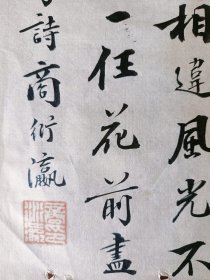 相違風光不
一任花前盡
詩商衍瀛